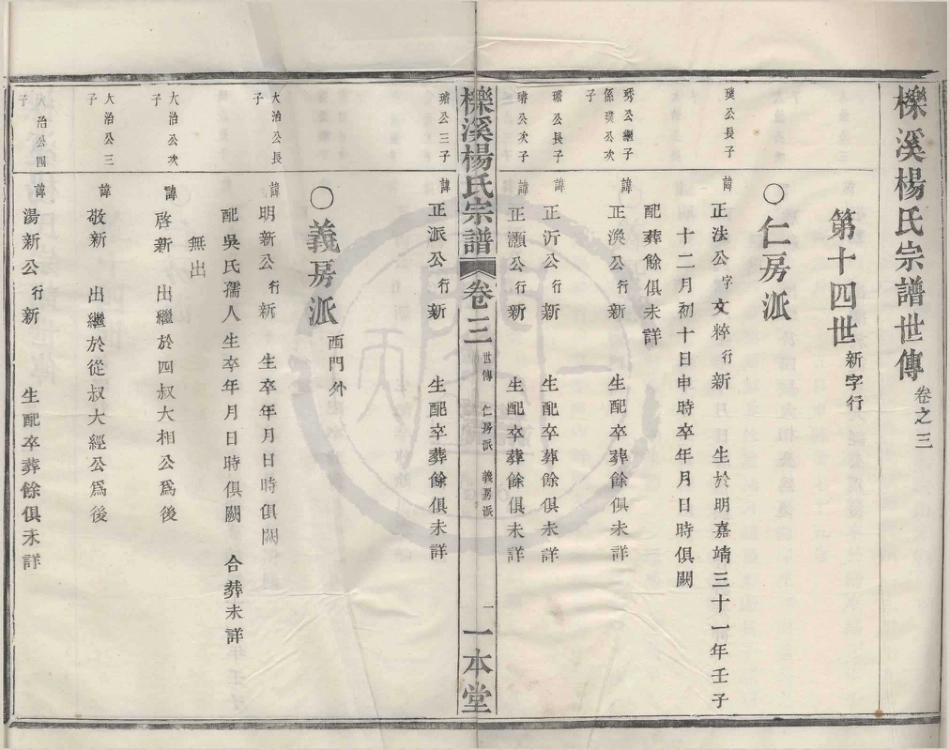 櫟溪楊氏宗譜世傳 卷之三
第十四世 新字行
○仁房派
公長子
諱正法公 字文粹 行新 生於明嘉靖三十一年壬子
十二月初十日申時卒年月日時俱闕
配葬餘俱未詳
公繼子
係璞公次
子
諱正渙公 行新 生配卒葬餘俱未詳
公長子
諱正沂公 行新 生配卒葬餘俱未詳
公次子
諱正灝公 行新 生配卒葬餘俱未詳
櫟溪楊氏宗譜 卷三 世傳 仁房派 義房派 一 一本堂
公三子
諱正派公 行新 生配卒葬餘俱未詳
○義房派 西門外
大治公長
子
諱明新公 行新 生卒年月日時俱闕
配吳氏孺人生卒年月日時俱闕 合葬未詳
無出
大治公次
子
諱啓新 出繼於四叔大相公爲後
大治公三
子
諱敬新 出繼於從叔大經公爲後
大治公四
子
諱湯新公 行新 生配卒葬餘俱未詳